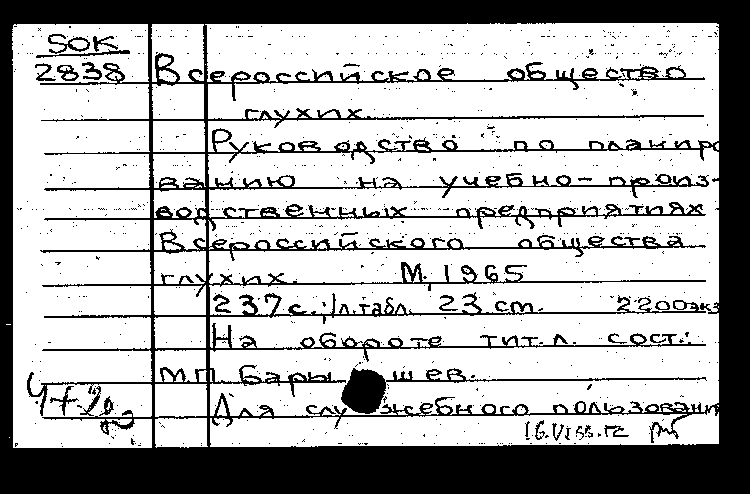 SOK
2838
Всероссийское общество
глухих.
Руководство по планиро
ванию на учебно-произ-
водственных предприятиях
Всероссийского общества
глухих. М, 1965
237 с.; 1л.табл. 23 cm. 2200экз
На обороте тит.л. сост.:
М.П. Барышев.
Для служебного пользования